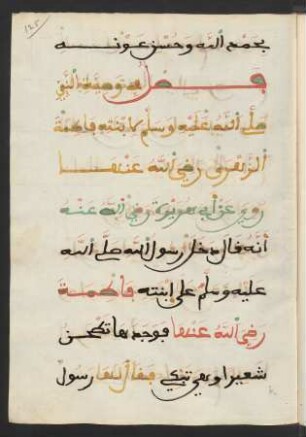 ١٢٥
بحمد الله وحسن عونه
فصل في وصية النبي
صلى الله عليه وسلم لابنته فاطمة
الزهرى رضي الله عنها
روي عن أبي هريرة رضي الله عنه
أنه قال دخل رسول الله صلى الله
عليه وسلم على ابنته فاطمة
رضي الله عنها فوجدها تطحن
شعيرا وهي تبكي فقال لها رسول